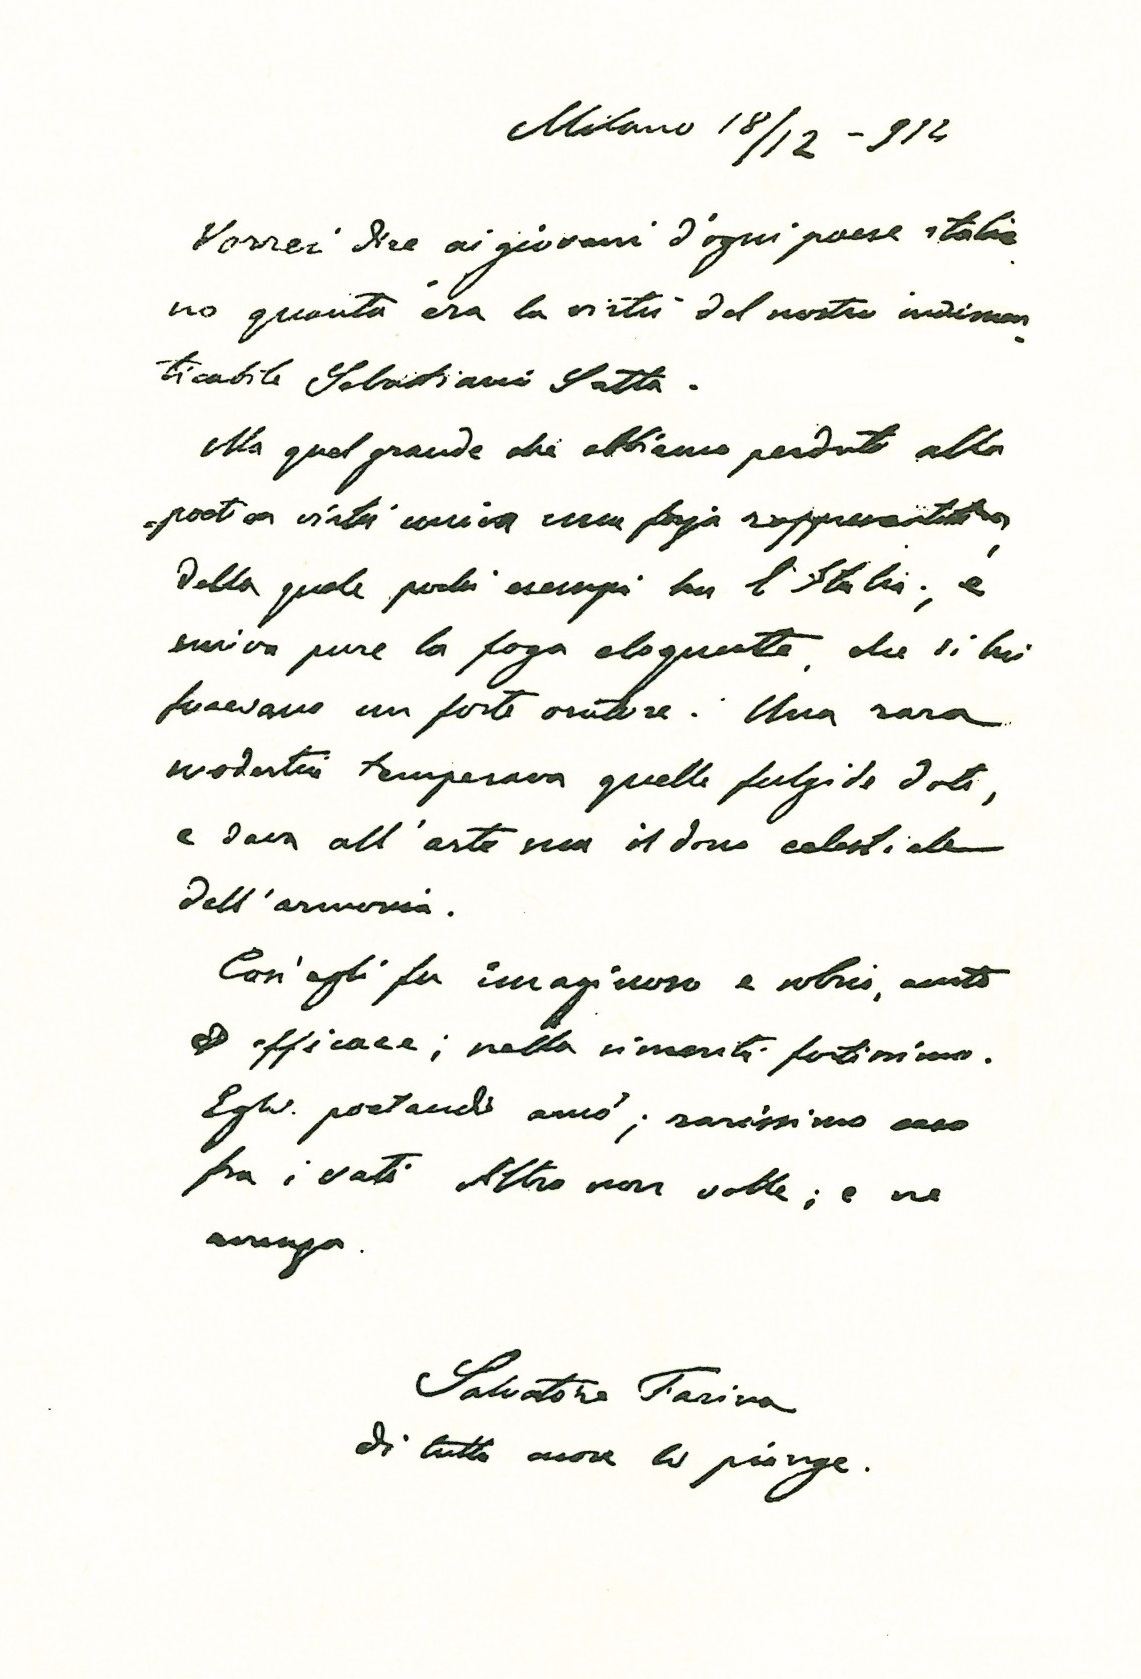 Milano 18/12 - 914
Vorrei dire ai giovani d'ogni paese italia
no quanta era la virtù del nostro indimen-
ticabile Sebastiano Satta.
Ma quel grande che abbiamo perduto alla
poetica virtù univa una forza rappresentativa
della quale pochi esempi ha l'Italia; e
univa pure la foga eloquente, che di lui
facevano un forte oratore. Una rara
modestia temperava quelle fulgide doti,
e dava all'arte sua il dono celestiale
dell'armonia.
Così egli fu imaginoso e sobrio, acuto
ed efficace; nella fortissimo.
Egli poetando amò; rarissimo caso
fra i vati Altro non volle; e ne
avanza.
Salvatore Farina
di tutto cuore lo piange.